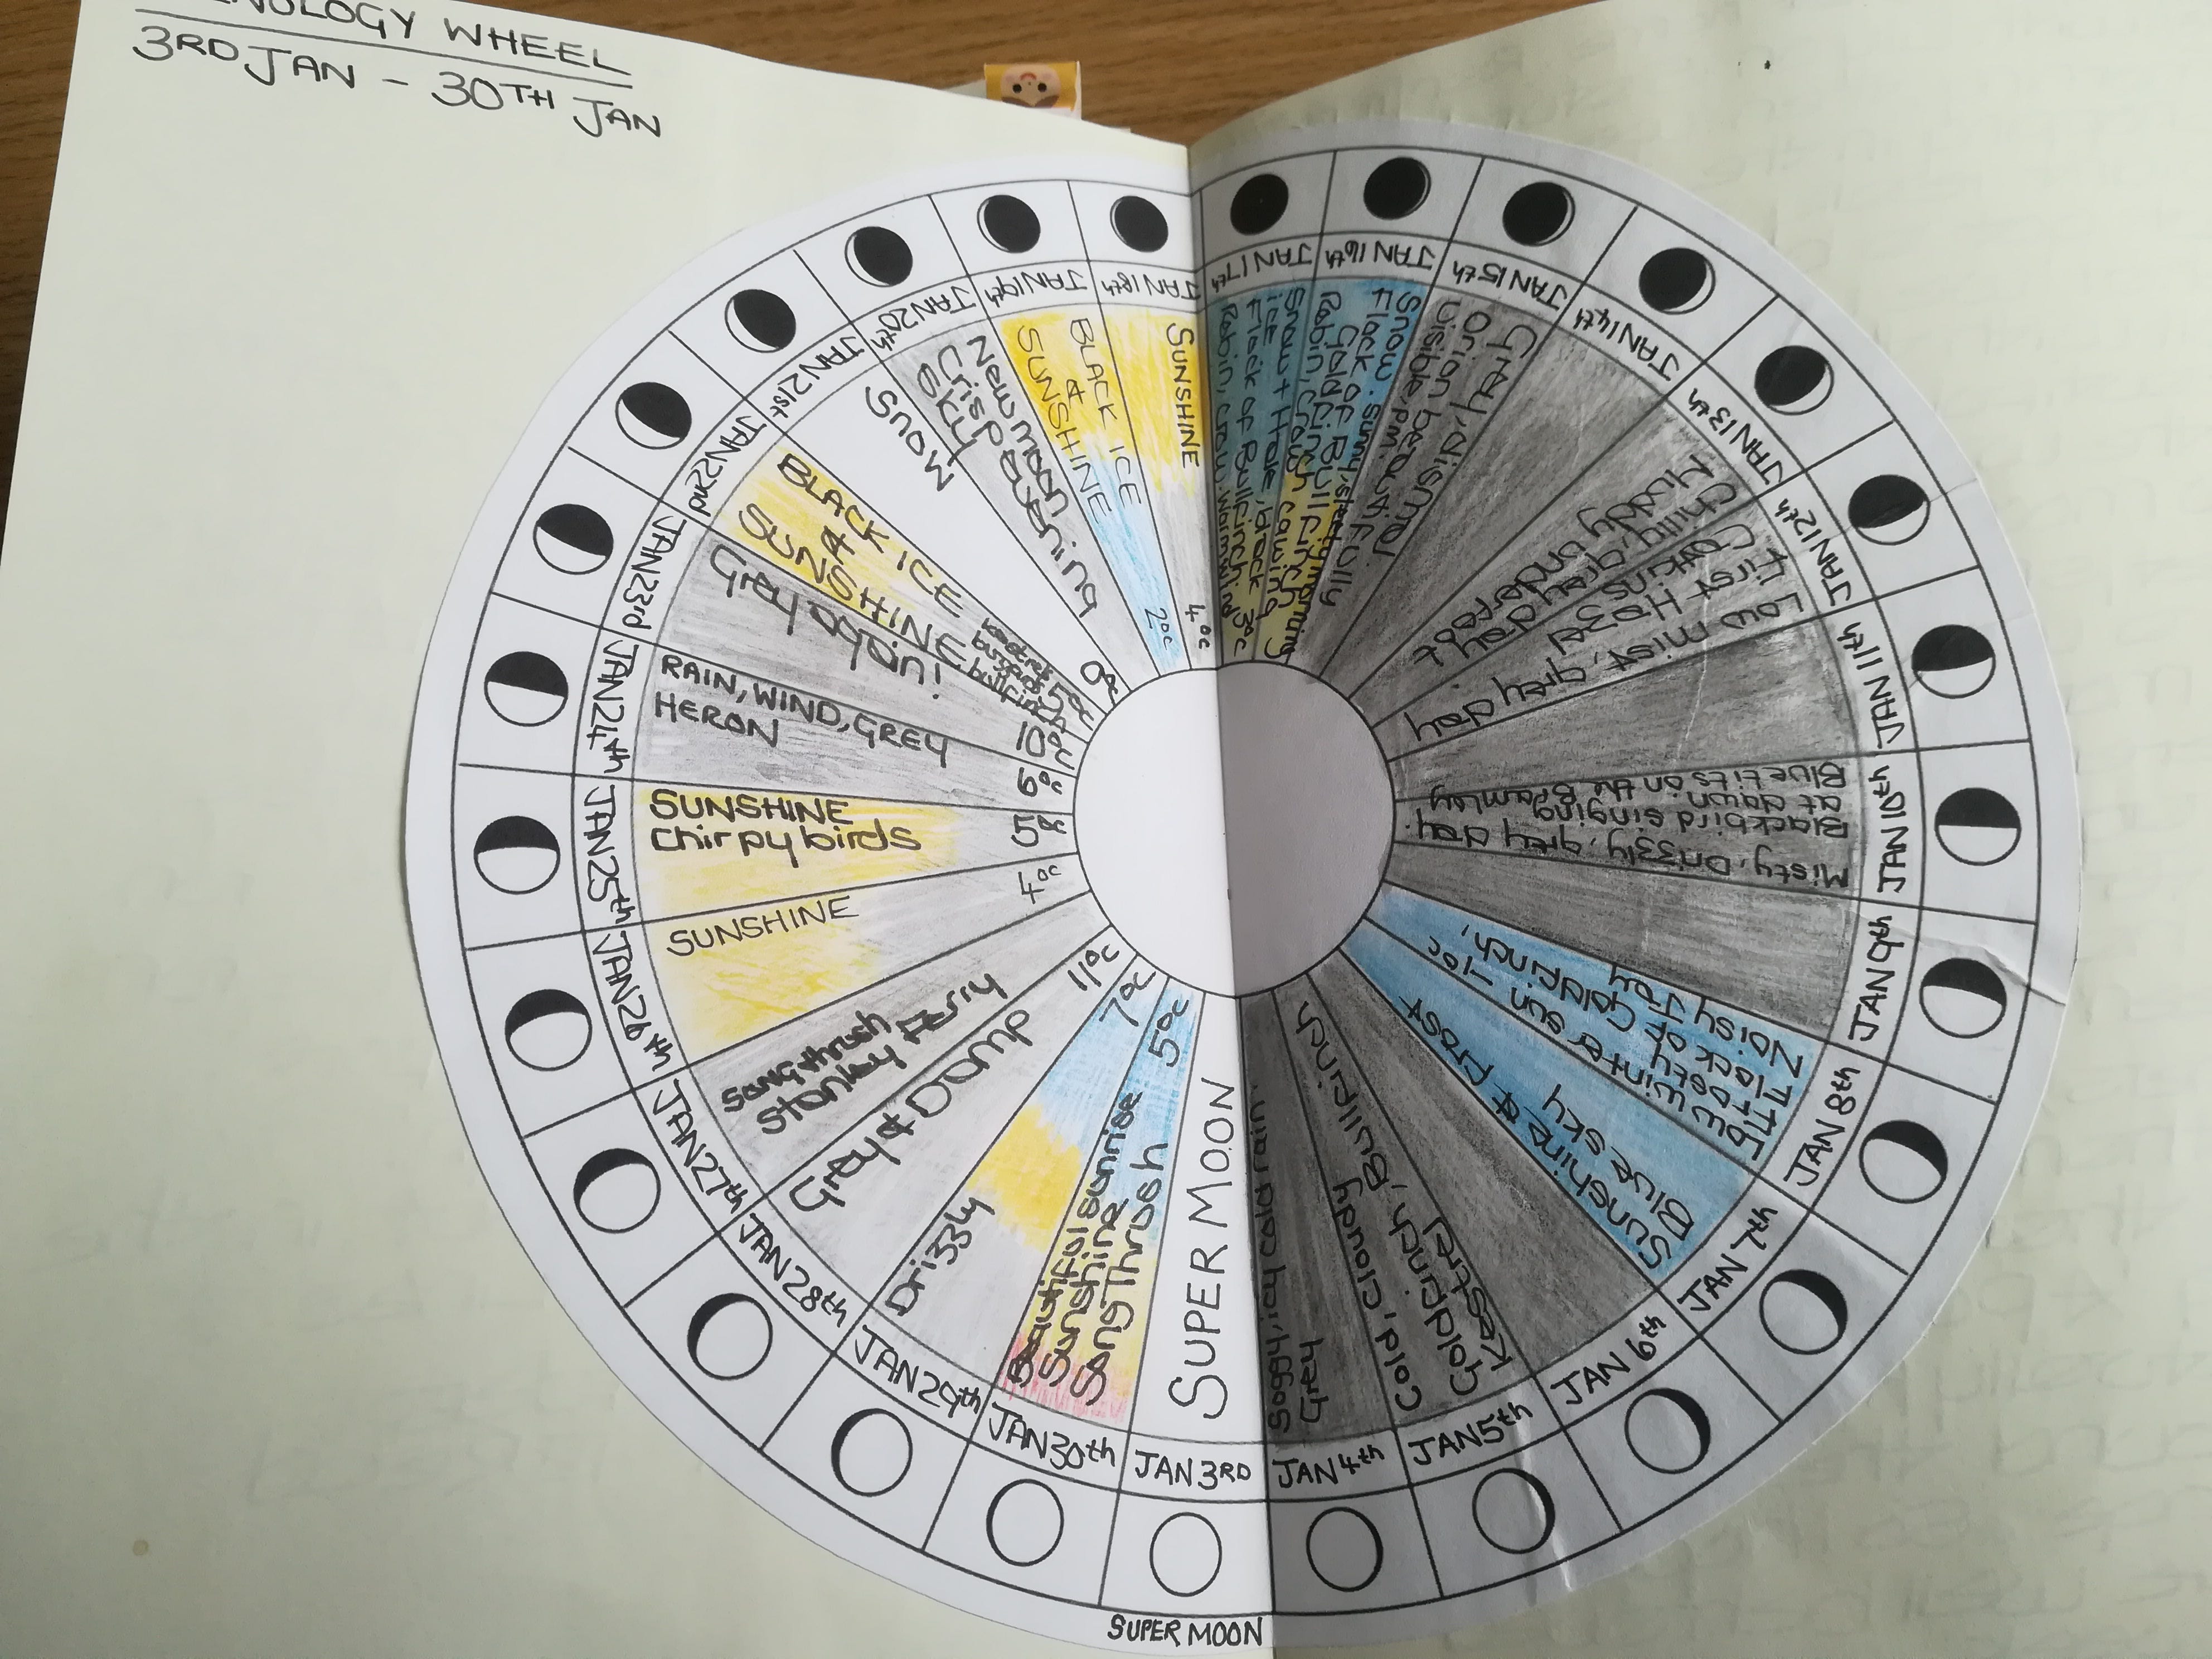 NOLOGY WHEEL
3RD JAN - 30TH JAN
JAN 3RD
SUPER MOON
SUPER MOON
JAN 4th
Soggy, icy cold rain.
Grey
JAN 5th
Cold, cloudy
Goldfinch, Bullfinch
Kestrel
JAN 6th
JAN 7th
Sunshine & frost
Blue sky
JAN 8th
Low winter sun -1°C
Flock of Goldfinch,
Noisy Jay
JAN 9th
JAN 10th
Misty, Drizzly, grey day.
Blackbird singing
at dawn
Blue tits on the Bramley
JAN 11th
JAN 12th
Low mist, grey day
First Hazel
Catkins
Chilly, grey day
Muddy underfoot
JAN 13th
JAN 14th
JAN 15th
Grey, dismal
Orion beautifully
Visible, pm.
JAN 16th
Snow. sunny, sleety morning
Flock of Bullfinch
Goldfinch
Robin, Crow cawing
JAN 17th
Snow + thaw, black
ice 3°C
Flock of Bullfinch
Robin, crow,
JAN 18th
SUNSHINE
4°C
JAN 19th
BLACK ICE
&
SUNSHINE
2°C
JAN 20th
New moon
Crisp evening
Sky
JAN 21st
Snow
0°C
JAN 22nd
BLACK ICE
&
SUNSHINE
buzzard
bullfinch
5°C
JAN 23rd
Grey again!
10°C
JAN 24th
RAIN, WIND, GREY
HERON
6°C
JAN 25th
SUNSHINE
Chirpy birds
5°C
JAN 26th
SUNSHINE
4°C
JAN 27th
Song thrush
Stanley Ferry
JAN 28th
Grey & Damp
11°C
JAN 29th
Drizzly
7°C
JAN 30th
Beautiful sunrise
Sunshine
Song Thrush
5°C